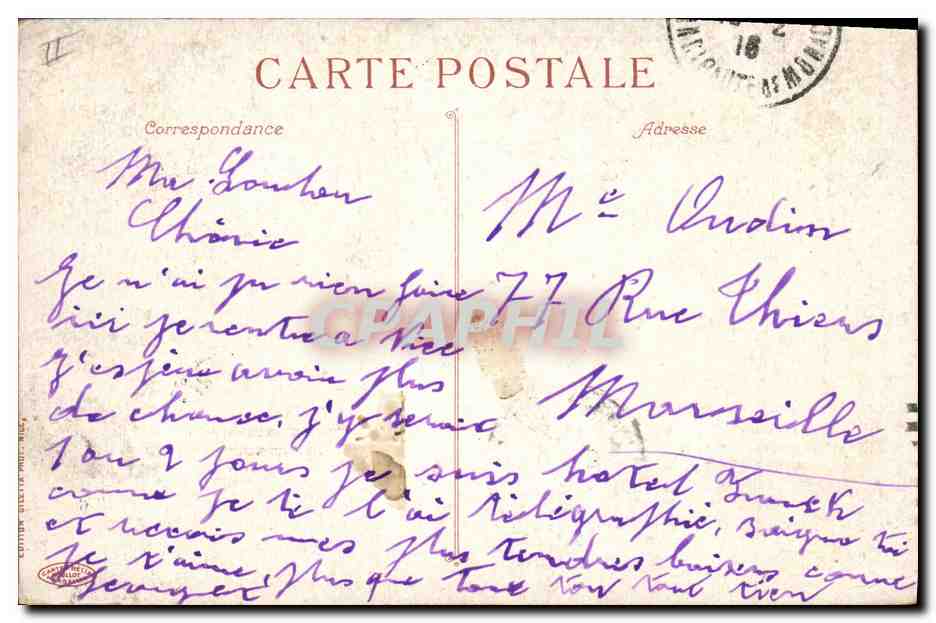 II
CARTE POSTALE
Correspondance
Adresse
Ma
Chérie
Je n'ai pu rien faire
ici je rentre a Nice
j'espère avoir plus
de chance, j'y serai
1 ou 2 jours je suis hotel
comme je te l'ai télégraphié, soigne toi
et recois mes plus tendres baisers comme
je t'aime, plus que tout ton tout tien
Georges
Me Oudin
77 Rue Thiers
Marseille
18
PRINCIPAUTE DE MONACO
EDITION GILETTA PHOT. NICE.
CPAPHIL